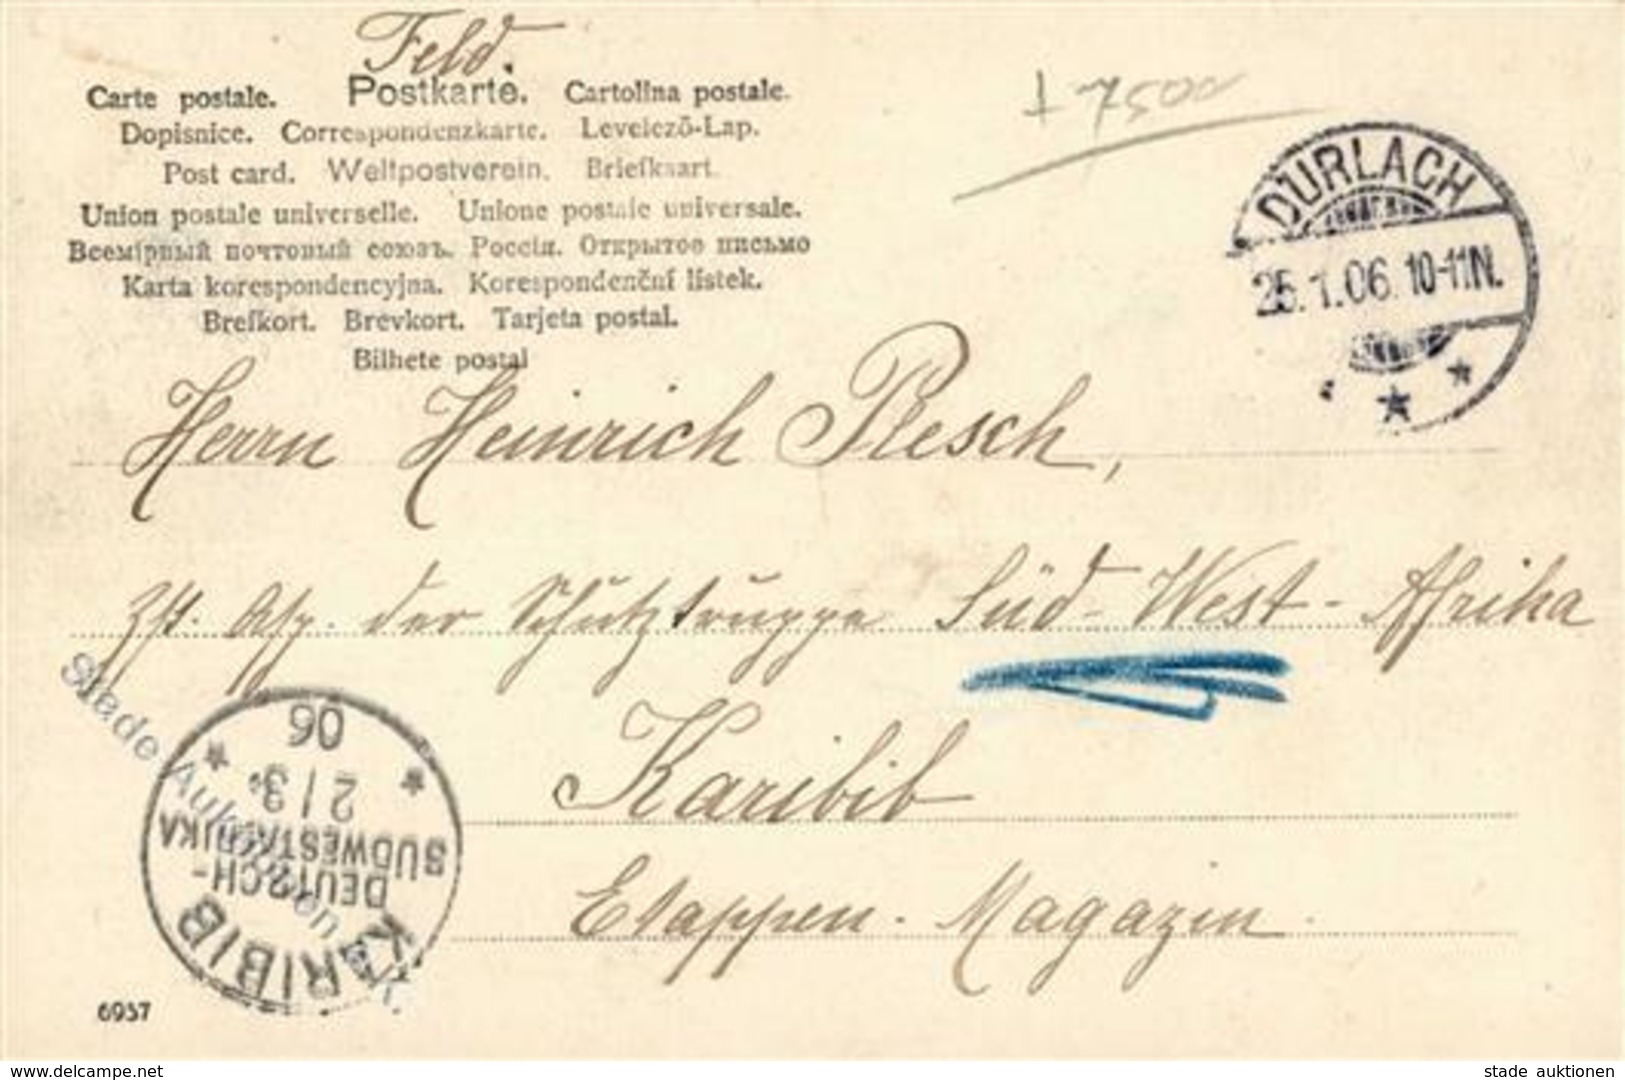 Feld.
Carte postale. Postkarte. Cartolina postale.
Dopisnice. Correspondenzkarte. Levelező-Lap.
Post card. Weltpostverein. Briefkaart.
Union postale universelle. Unione postale universale.
Всемірный почтовый союзъ. Россія. Открытое письмо
Karta korespondencyjna. Korespondenční lístek.
Brefkort. Brevkort. Tarjeta postal.
Bilhete postal
7500
DURLACH
25.1.06. 10-11N.
Herrn Heinrich Plesch,
der Schutztruppe Süd-West-Afrika
Karibib
Etappen-Magazin.
KARIBIB
DEUTSCH-
SÜDWESTAFRIKA
2/3
06
Stade Auktionen
6937
www.delcampe.net
stade auktionen